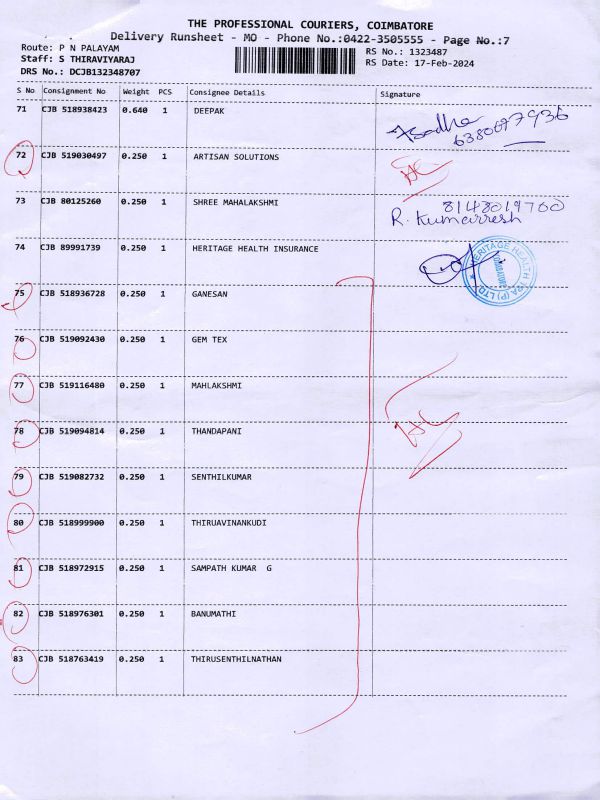 THE PROFESSIONAL COURIERS, COIMBATORE
Delivery Runsheet - MO - Phone No.:0422-3505555 - Page No.:7
Route: P N PALAYAM
Staff: S THIRAVIYARAJ
DRS No.: DCJB132348707
RS No.: 1323487
RS Date: 17-Feb-2024
S No Consignment No Weight PCS Consignee Details Signature
71 CJB 518938423 0.640 1 DEEPAK
6380697936
72 CJB 519030497 0.250 1 ARTISAN SOLUTIONS
73 CJB 80125260 0.250 1 SHREE MAHALAKSHMI
8148019700
R. Kumarresh
74 CJB 89991739 0.250 1 HERITAGE HEALTH INSURANCE
HERITAGE HEALTH TPA (P) LTD
COIMBATORE
75 CJB 518936728 0.250 1 GANESAN
76 CJB 519092430 0.250 1 GEM TEX
77 CJB 519116480 0.250 1 MAHLAKSHMI
78 CJB 519094814 0.250 1 THANDAPANI
79 CJB 519082732 0.250 1 SENTHILKUMAR
80 CJB 518999900 0.250 1 THIRUAVINANKUDI
81 CJB 518972915 0.250 1 SAMPATH KUMAR G
82 CJB 518976301 0.250 1 BANUMATHI
83 CJB 518763419 0.250 1 THIRUSENTHILNATHAN